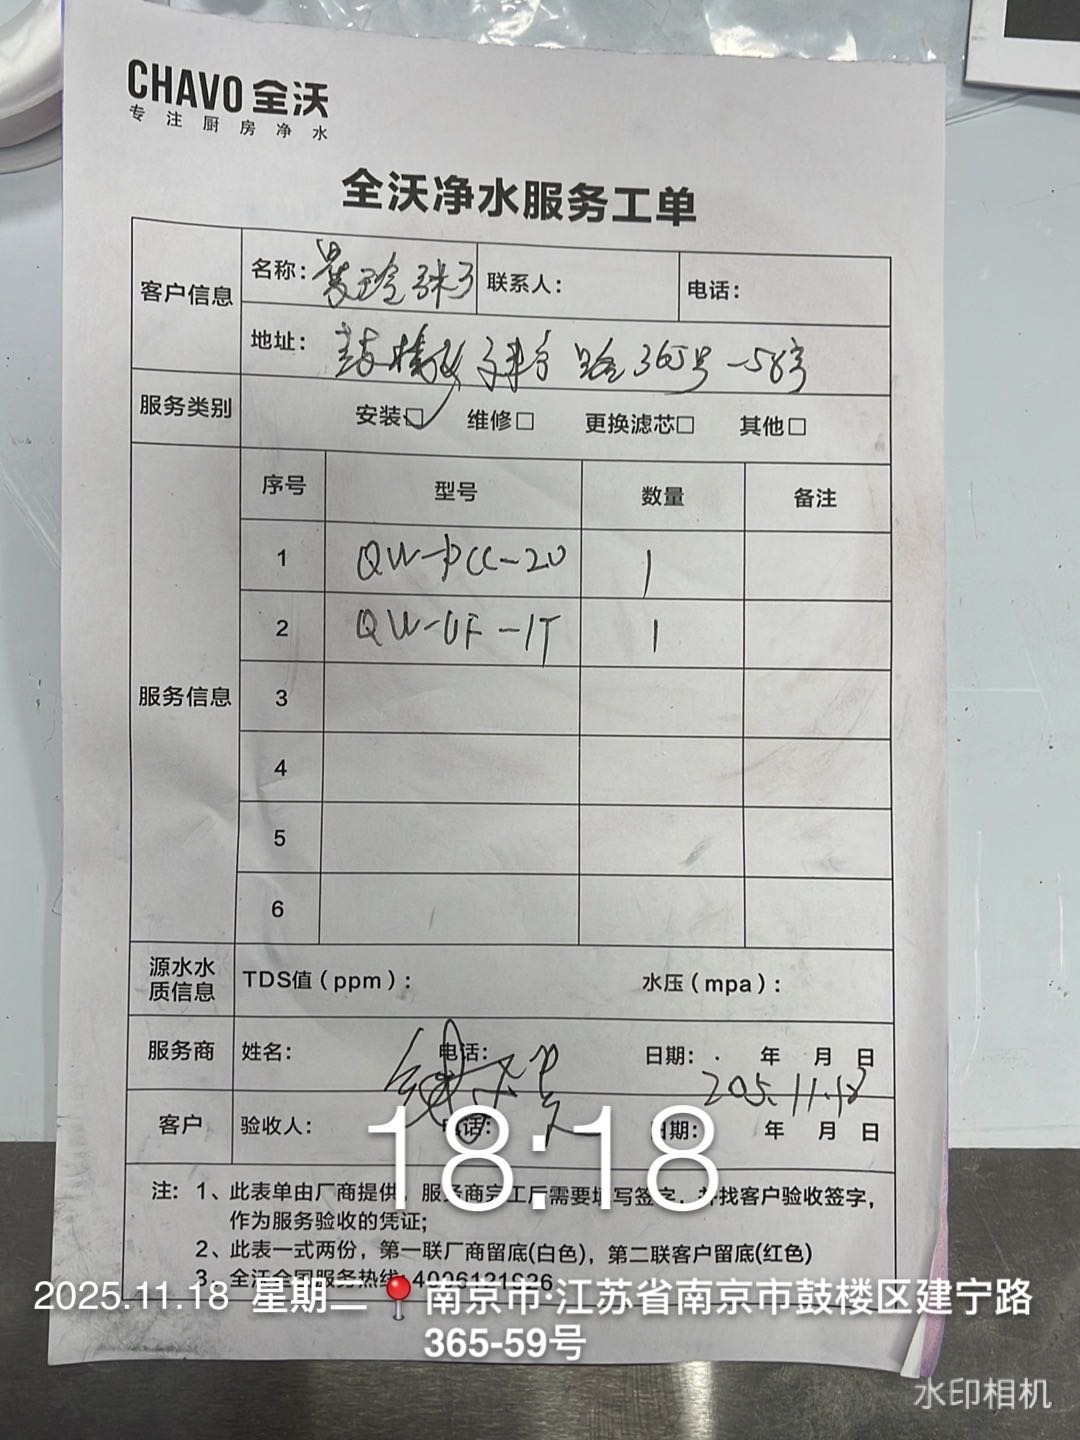 CHAVO 全沃
专注厨房净水
全沃净水服务工单
客户信息 名称： 联系人： 电话：
地址： 路365号-58号
服务类别 安装☑ 维修□ 更换滤芯□ 其他□
服务信息 序号 型号 数量 备注
1 QW-PCC-20 1
2 QW-UF-1T 1
3
4
5
6
源水水质信息 TDS值（ppm）： 水压（mpa）：
服务商 姓名： 电话： 日期： 年 月 日
205.11.18
客户 验收人： 电话： 日期： 年 月 日
18:18
注：1、此表单由厂商提供，服务商完工后需要填写签字，并找客户验收签字，
作为服务验收的凭证；
2、此表一式两份，第一联厂商留底(白色)，第二联客户留底(红色)
3、全沃全国服务热线：4006121926
2025.11.18 星期二 南京市·江苏省南京市鼓楼区建宁路
365-59号
水印相机